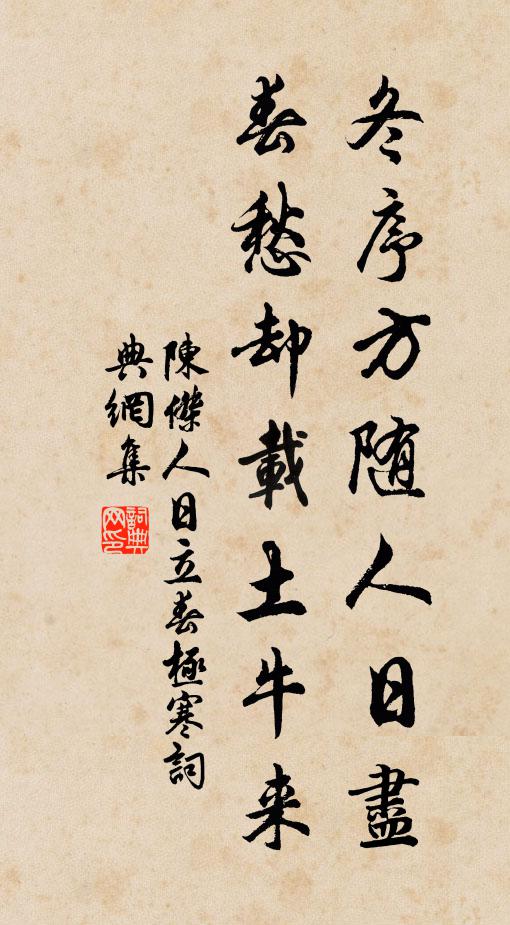 冬序方随人日盡
春愁却載土牛来
陳傑人日立春極寒詞
典網集
詞典網印